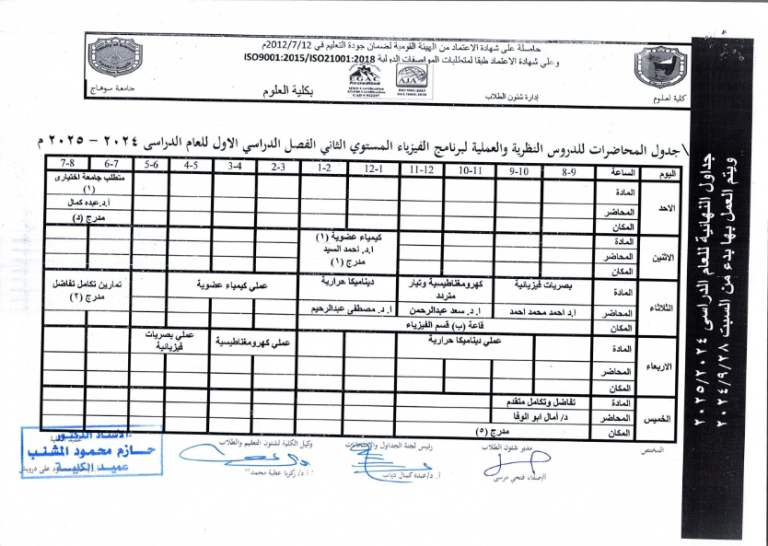 حاصلة على شهادة الاعتماد من الهيئة القومية لضمان جودة التعليم في 2012/7/12م
وعلى شهادة الاعتماد طبقا لمتطلبات المواصفات الدولية ISO9001:2015/ISO21001:2018
كلية العلوم
إدارة شئون الطلاب
EGAC
AJA
بكلية العلوم
جامعة سوهاج
جداول النهائية للعام الدراسى ٢٠٢٥/٢٠٢٤
ويتم العمل بها بدء من السبت ٢٠٢٤/٩/٢٨
جدول المحاضرات للدروس النظرية والعملية لبرنامج الفيزياء المستوي الثاني الفصل الدراسي الاول للعام الدراسى ٢٠٢٤ – ٢٠٢٥ م
اليوم الساعة 8-9 9-10 10-11 11-12 12-1 1-2 2-3 3-4 4-5 5-6 6-7 7-8
الاحد
المادة متطلب جامعة اختيارى (١)
المحاضر أ.د.عبده كمال
المكان مدرج (د)
الاثنين
المادة كيمياء عضوية (١)
المحاضر ا.د. احمد السيد
المكان مدرج (١)
الثلاثاء
المادة بصريات فيزيائية كهرومغناطيسية وتيار متردد ديناميكا حرارية عملي كيمياء عضوية تمارين تكامل تفاضل مدرج (٢)
المحاضر ا.د احمد محمد احمد ا.د. سعد عبدالرحمن ا.د. مصطفى عبدالرحيم
المكان قاعة (ب) قسم الفيزياء
الاربعاء
المادة عملي ديناميكا حرارية عملي كهرومغناطيسية عملي بصريات فيزيائية
المحاضر
المكان
الخميس
المادة تفاضل وتكامل متقدم
المحاضر د/ أمال ابو الوفا
المكان مدرج (٥)
المختص
مدير شئون الطلاب
رئيس لجنة الجداول والامتحانات
أ.د/عبده كمال دياب
وكيل الكلية لشئون التعليم والطلاب
أ.د/ زكريا عطية محمد
الأستاذ الدكتور
حازم محمود المشنب
عميد الكلية